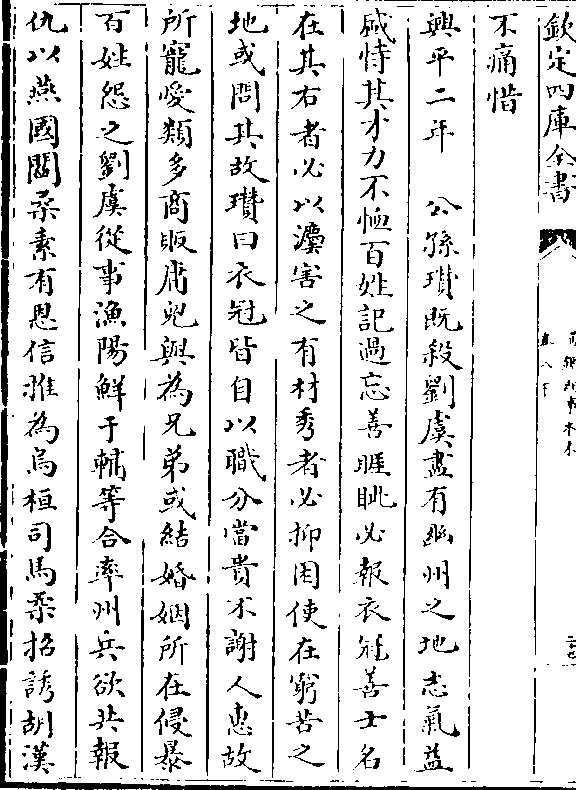 欽定四庫全書
不痛惜
興平二年　公孫瓚既殺劉虞盡有幽州之地志氣益
威恃其才力不恤百姓記過忘善睚眦必報衣冠善士名
在其右者必以灋害之有材秀者必抑困使在窮苦之
地或問其故瓚曰衣冠皆自以職分當貴不謝人惠故
所寵愛類多商販庸兒與為兄弟或結婚姻所在侵暴
百姓怨之劉虞從事漁陽鮮于輔等合率州兵欲共報
仇以燕國閻柔素有恩信推為烏桓司馬柔招誘胡漢